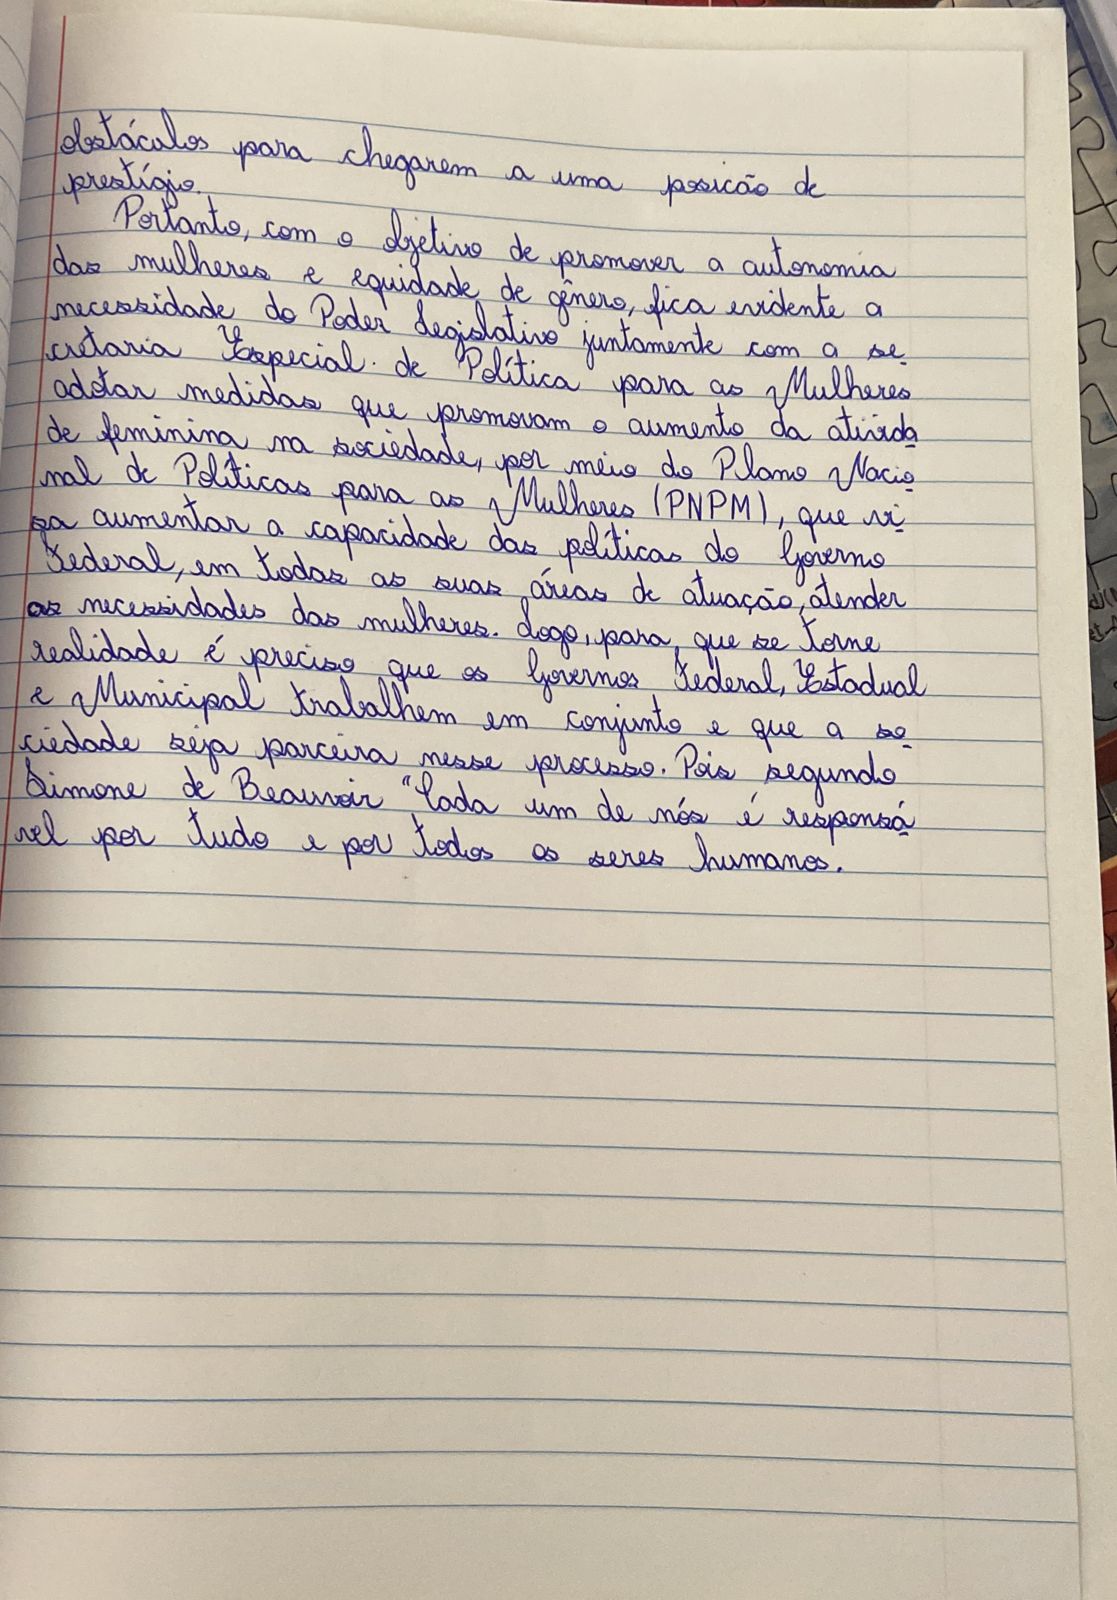 obstáculos para chegarem a uma posicão de
prestígio.
Portanto, com o objetivo de promover a autonomia
das mulheres e equidade de gênero, fica evidente a
necessidade do Poder Legislativo juntamente com a se
cretaria Especial de Política para as Mulheres
adotar medidas que promovam o aumento da ativida
de feminina na sociedade, por meio do Plano Nacio
nal de Políticas para as Mulheres (PNPM), que vi
sa aumentar a capacidade das políticas do Governo
Federal, em todas as suas áreas de atuação, atender
as necessidades das mulheres. Logo, para, que se torne
realidade é preciso que os Governos Federal, Estadual
e Municipal trabalhem em conjunto e que a so
ciedade seja parceira nesse processo. Pois segundo
Simone de Beauvoir "Cada um de nós é responsá
vel por tudo e por todos os seres humanos.